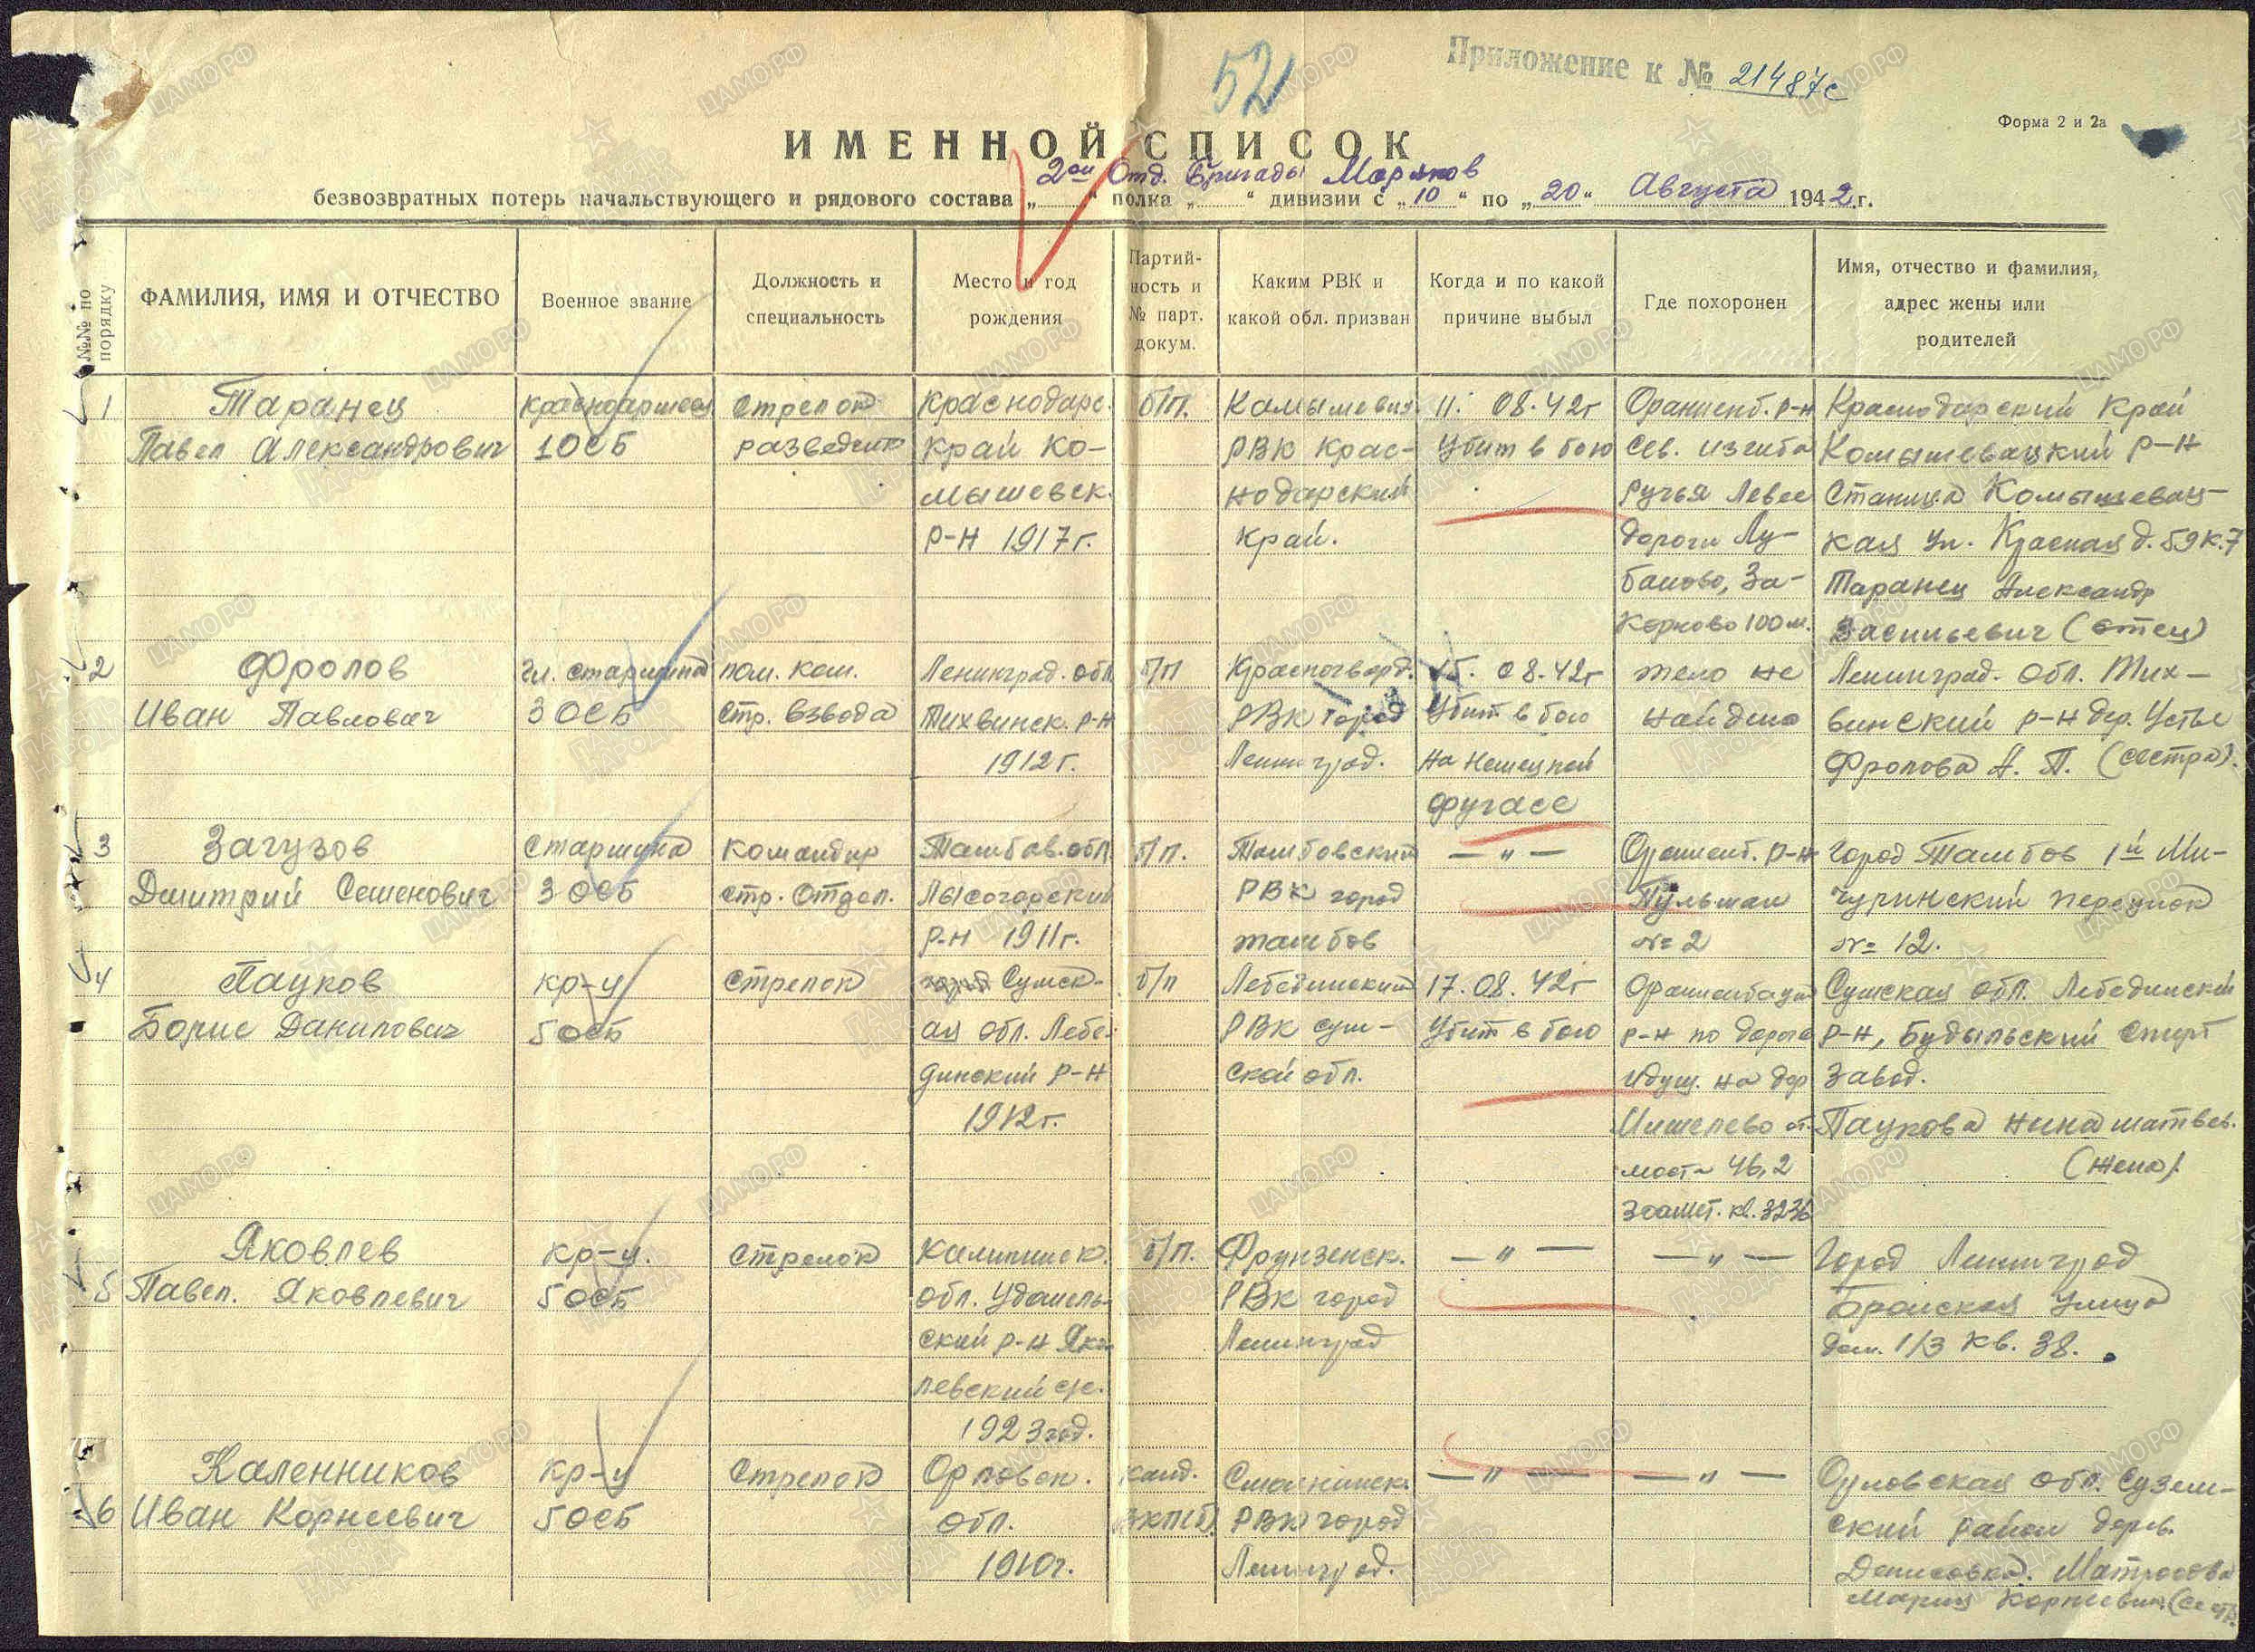 52
Приложение к № 21487с
Форма 2 и 2а
ИМЕННОЙ СПИСОК
2ой Отд. Бригады Моряков
безвозвратных потерь начальствующего и рядового состава „ “ полка „ “ дивизии с „10“ по „20“ Августа 1942 г.
№№ по порядку
ФАМИЛИЯ, ИМЯ И ОТЧЕСТВО
Военное звание
Должность и
специальность
Место и год
рождения
Партий-
ность и
№ парт.
докум.
Каким РВК и
какой обл. призван
Когда и по какой
причине выбыл
Где похоронен
Имя, отчество и фамилия,
адрес жены или
родителей
1
Таранец
Павел Александрович
красноармеец
1 ОСБ
Стрелок
разведчик
Краснодарс.
край Ко-
мышевск.
р-н 1917 г.
б/п.
РВК Крас-
нодарский
край.
11. 08. 42 г
Убит в бою
Ораниенб. р-н
Сев. изгиба
Ручья Левее
дороги Лу-
баново, За-
Корново 100 м.
Краснодарский край
Комышевацкий р-н
Станица Комышевац-
кая ул. Красная д. 59 к. 7
Таранец Александр
Васильевич (отец)
2
Фролов
Иван Павлович
Гл. старшина
3 ОСБ
пом. ком.
Стр. взвода
Ленинград. обл.
Тихвинск. р-н
1912 г.
б/п
Красногвард.
РВК город
Ленинград.
15. 08. 42 г
Убит в бою
на немецкой
фугасе
тело не
найдено
Ленинград. обл. Тих-
винский р-н дер. Устье
Фролова А. П. (сестра).
3
Загузов
Дмитрий Семенович
Старшина
3 ОСБ
Командир
Стр. Отдел.
Тамбов. обл.
Лысогорский
р-н 1911 г.
б/п.
Тамбовский
РВК город
Тамбов
— „ —
Ораниенб. р-н
Пульман
№ 2
Город Тамбов 1й Ми-
чуринский переулок
№ 12.
4
Пауков
Борис Данилович
кр-ц
5 ОСБ
Стрелок
город Сумск-
ая обл. Лебе-
динский р-н
1912 г.
б/п
Лебединский
РВК Сум-
ской обл.
17. 08. 42 г
Убит в бою
Ораниенбаум
р-н по дороге
идущ. на дер
Мишелево от.
46,2
кв. 3236
Сумская обл. Лебединский
р-н, Будыльский Спирт
Завод.
Паукова Нина Матвев.
(жена).
5
Яковлев
Павел. Яковлевич
кр-ц.
5 ОСБ
Стрелок
Калининск.
обл. Удомель-
ский р-н Яков-
левский с/с.
1923 год.
б/п.
Фрунзенск.
РВК город
Ленинград
— „ —
— „ —
Город Ленинград
улица
дом. 1/3 кв. 38.
6
Каленников
Иван Корнеевич
кр-ц
5 ОСБ
Стрелок
Орловск.
обл.
1910 г.
канд.
ВКП(б)
Смольнинск.
РВК город
Ленинград.
— „ —
— „ —
Орловская обл. Сузем-
ский район дерев.
Денисовка. Матросова
Мария Корнеевн. (сестр.